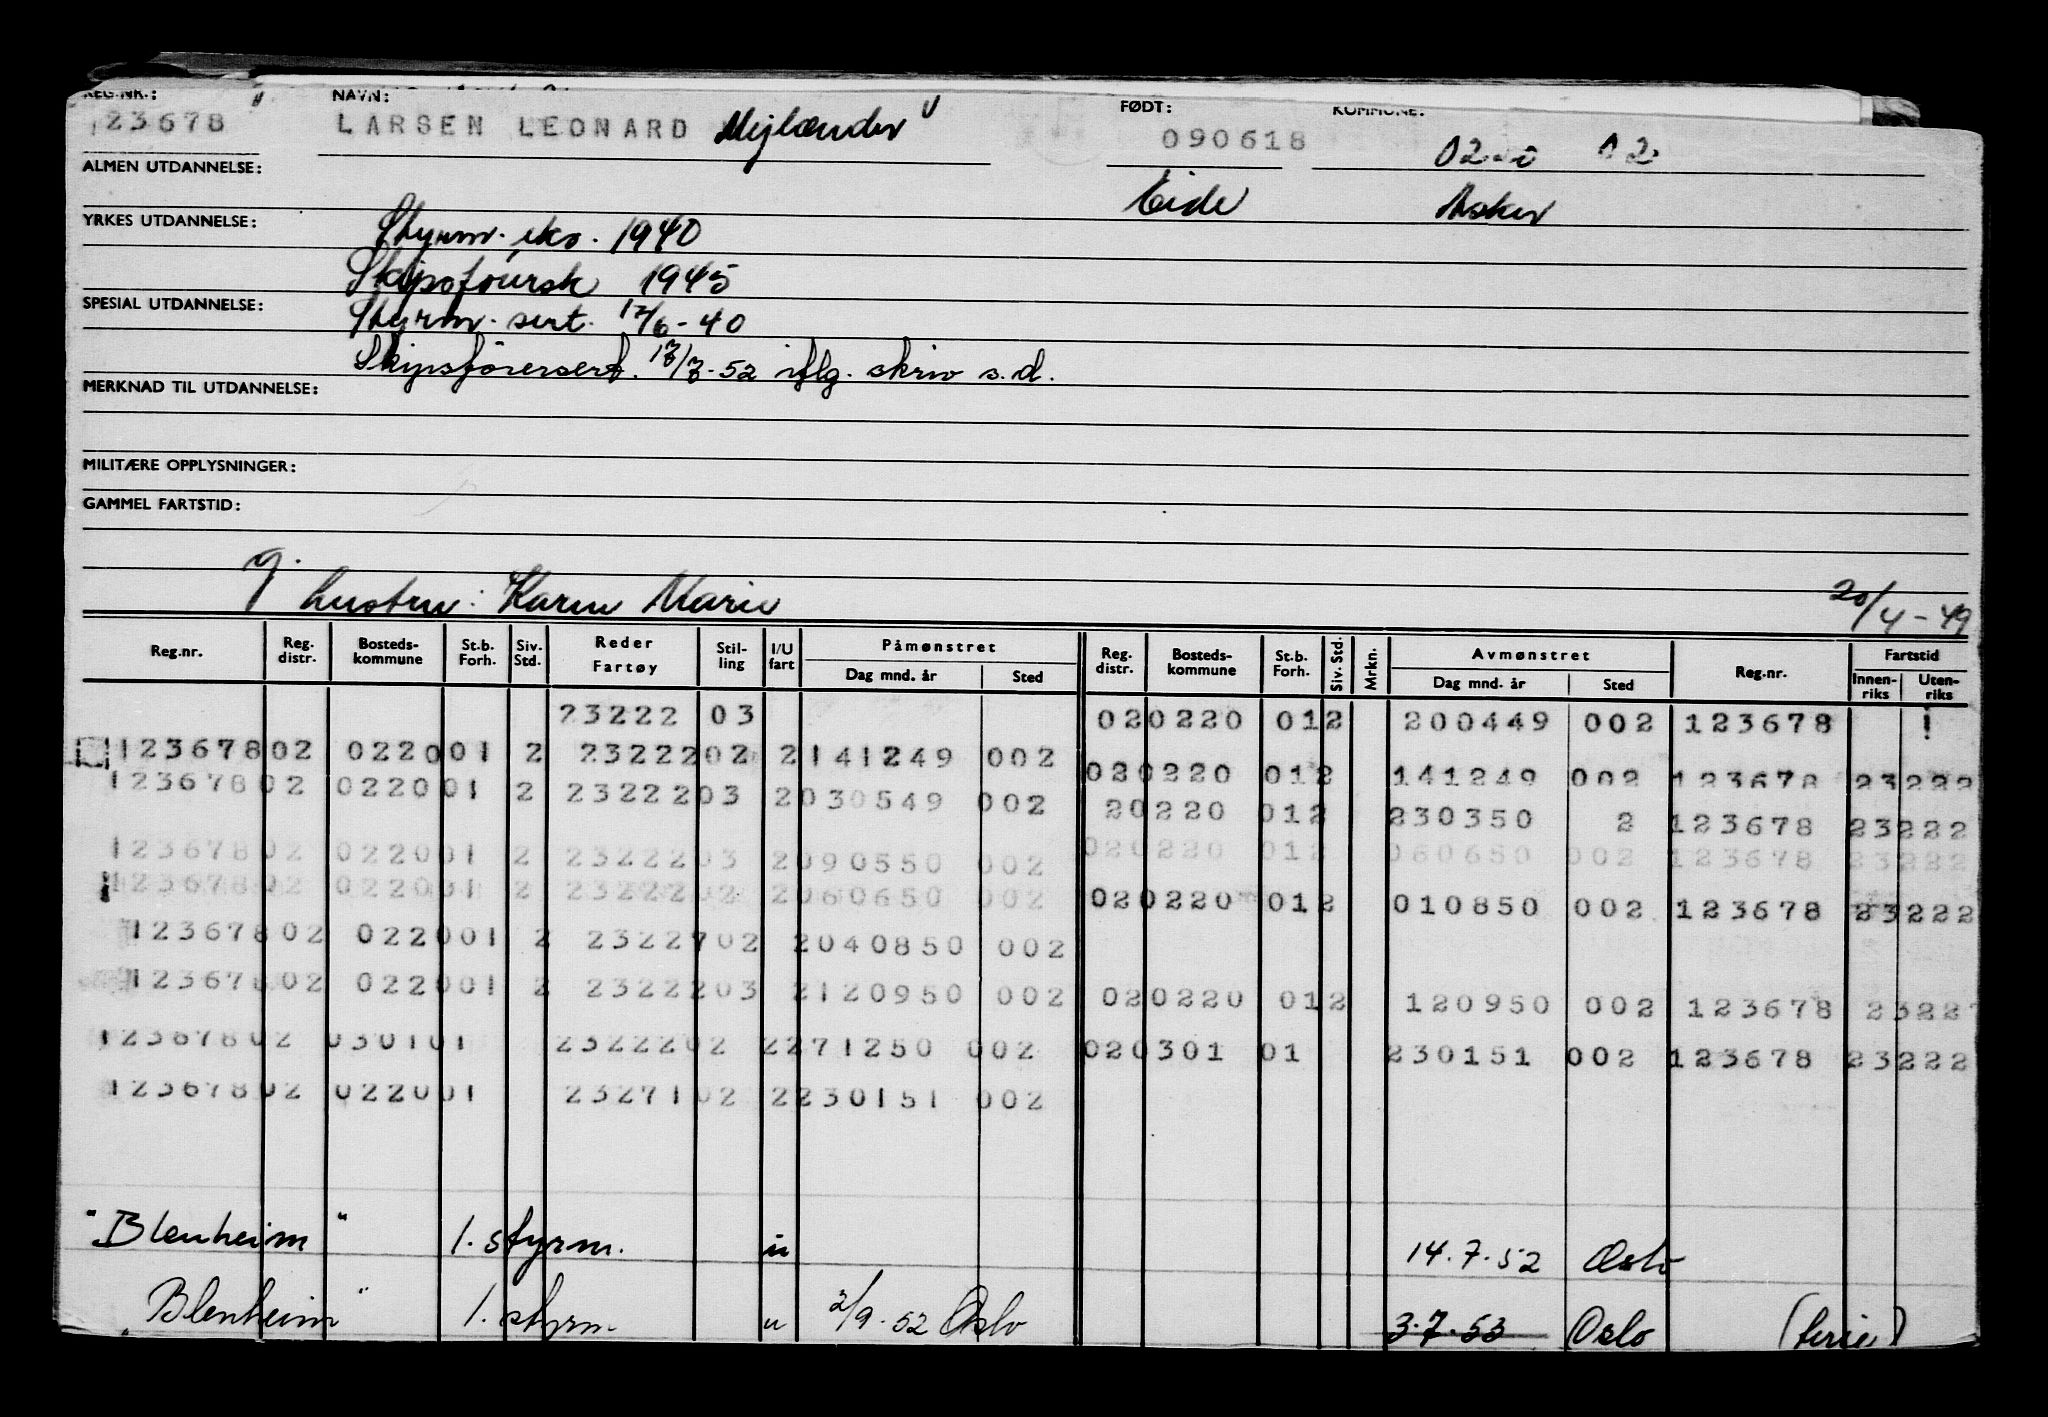 REG.NR.: NAVN: FØDT: KOMMUNE:
123678 LARSEN LEONARD Mejlænder 090618 02 02
ALMEN UTDANNELSE: Eide Asker
YRKES UTDANNELSE: Styrm. eks. 1940
Skipsførersk 1945
SPESIAL UTDANNELSE: Styrm. sert. 17/6-40
Skipsførersert. 17/7-52 iflg. skriv s.d.
MERKNAD TIL UTDANNELSE:
MILITÆRE OPPLYSNINGER:
GAMMEL FARTSTID:
g.
hustru: Karen Marie 20/4-49
Reg.nr. Reg. distr. Bosteds-kommune St.b. Forh. Siv. Std. Reder Fartøy Stil-ling I/U fart Påmønstret Dag mnd. år Sted Reg. distr. Bosteds-kommune St.b. Forh. Siv. Std. Mrkn. Avmønstret Dag mnd. år Sted Reg.nr. Fartstid Innen-riks Uten-riks
23222 03 020220 012 200449 002 123678
12367802 022001 2 2322202 2141249 002 020220 012 141249 002 123678 23222
12367802 022001 2 2322203 2030549 002 20220 012 230350 2 123678 23222
12367802 022001 2 2322203 2090550 002 020220 012 060650 002 123678 23222
12367802 022001 2 2322202 2060650 002 020220 012 010850 002 123678 23222
12367802 022001 2 2322202 2040850 002
12367802 022001 2 2322203 2120950 002 020220 012 120950 002 123678 23222
12367802 030101 2322202 2271250 002 020301 01 230151 002 123678 23222
12367802 022001 2327102 2230151 002
"Blenheim" 1. styrm. u 14.7.52 Oslo
"Blenheim" 1. styrm. u 2/9.52 Oslo 3.7.53 Oslo (ferie)